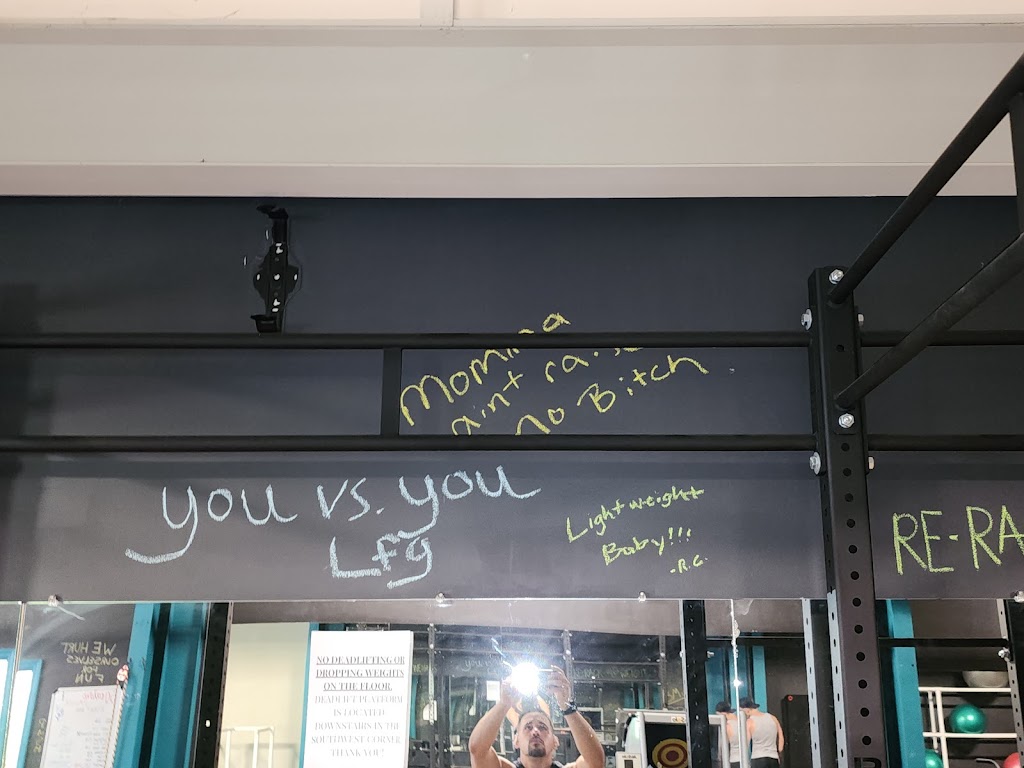 Momma
aint raise
no Bitch
you vs. you
Lfg
Light weight
Baby!!!
-R.G.
RE-RA
WE HURT
OURSELVES
FOR
FUN
NO DEADLIFTING OR
DROPPING WEIGHTS
ON THE FLOOR.
DEADLIFT PLATFORM
IS LOCATED
DOWNSTAIRS IN THE
SOUTHWEST CORNER.
THANK YOU!